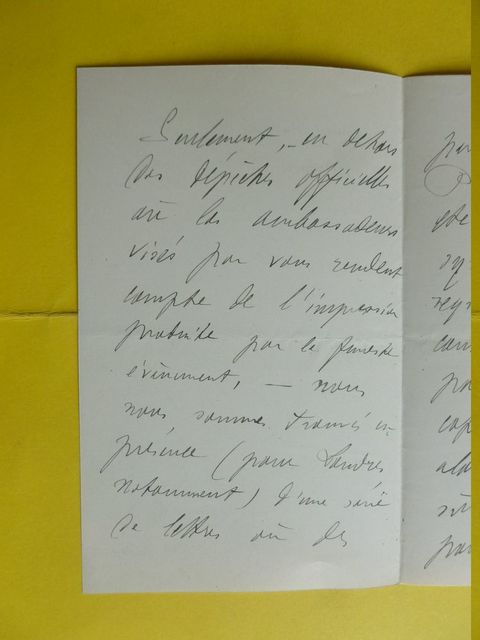 Seulement, en dehors
des dépêches officielles
où les ambassadeurs
visés par vous rendent
compte de l'impression
produite par le funeste
évènement, — nous
nous sommes trouvés en
présence (pour Londres
notamment) d'une série
de lettres où des